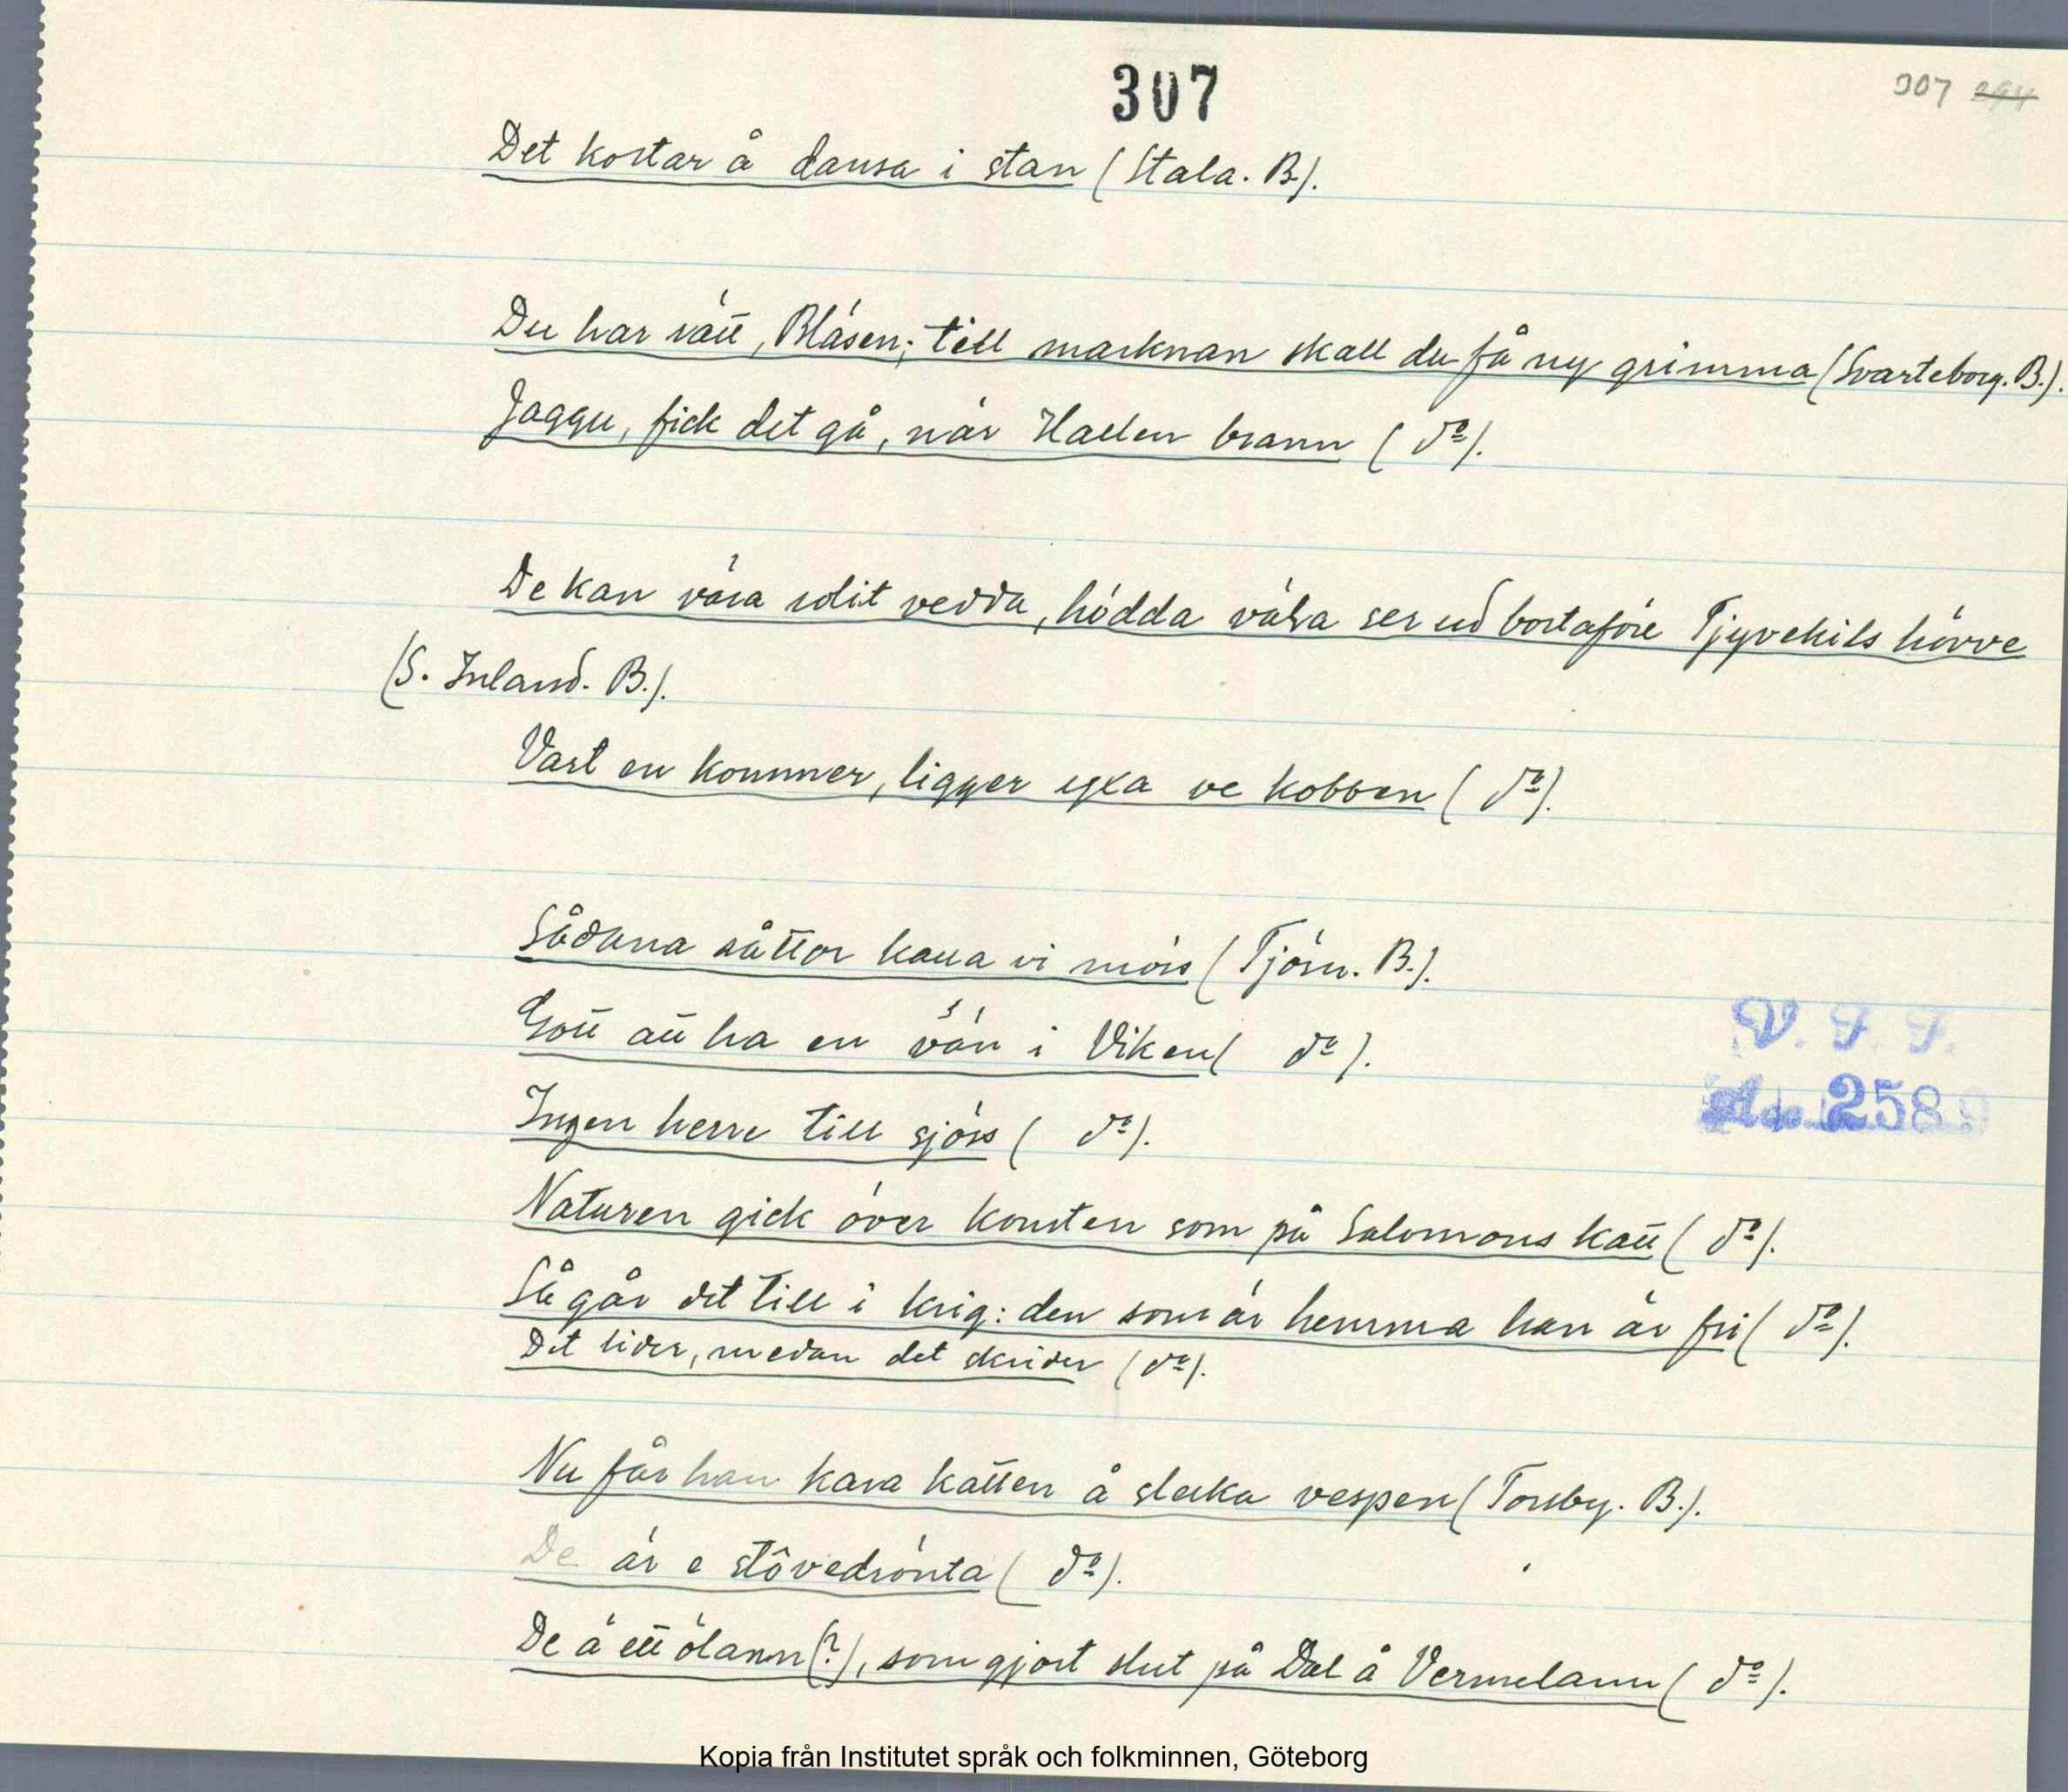 307
307 294
Det kostar å dansa i stan (Stala. B.).
Du har rätt, Bläsen; till marknan skall du få ny grimma (Svarteborg. B.).
Jaggu, fick det gå, när Hallen brann ( dº).
De kan våra solit vedda, hödda välva ser ud bortaföre Tjyvekils hörve
(S. Inland. B.).
Vart en kommer, ligger egka ve kobben ( dº).
Sådana råttor kana vi möss (Tjörn. B.).
Gott att ha en vän i Viken ( dº ).
Ingen herre till sjöss ( dº).
Naturen gick över konsten som på Salomons katt ( dº).
Så går det till i krig: den som är hemma han är fri ( dº).
Det lider, medan det skrider (dº).
Nu får han kara katten å slecka vespen (Torsby. B.).
De är e stôvedrönta ( dº).
De ä ett ölann(?), som gjort slut på Dal å Vermelann ( dº).
V. F. F.
2589
Kopia från Institutet språk och folkminnen, Göteborg